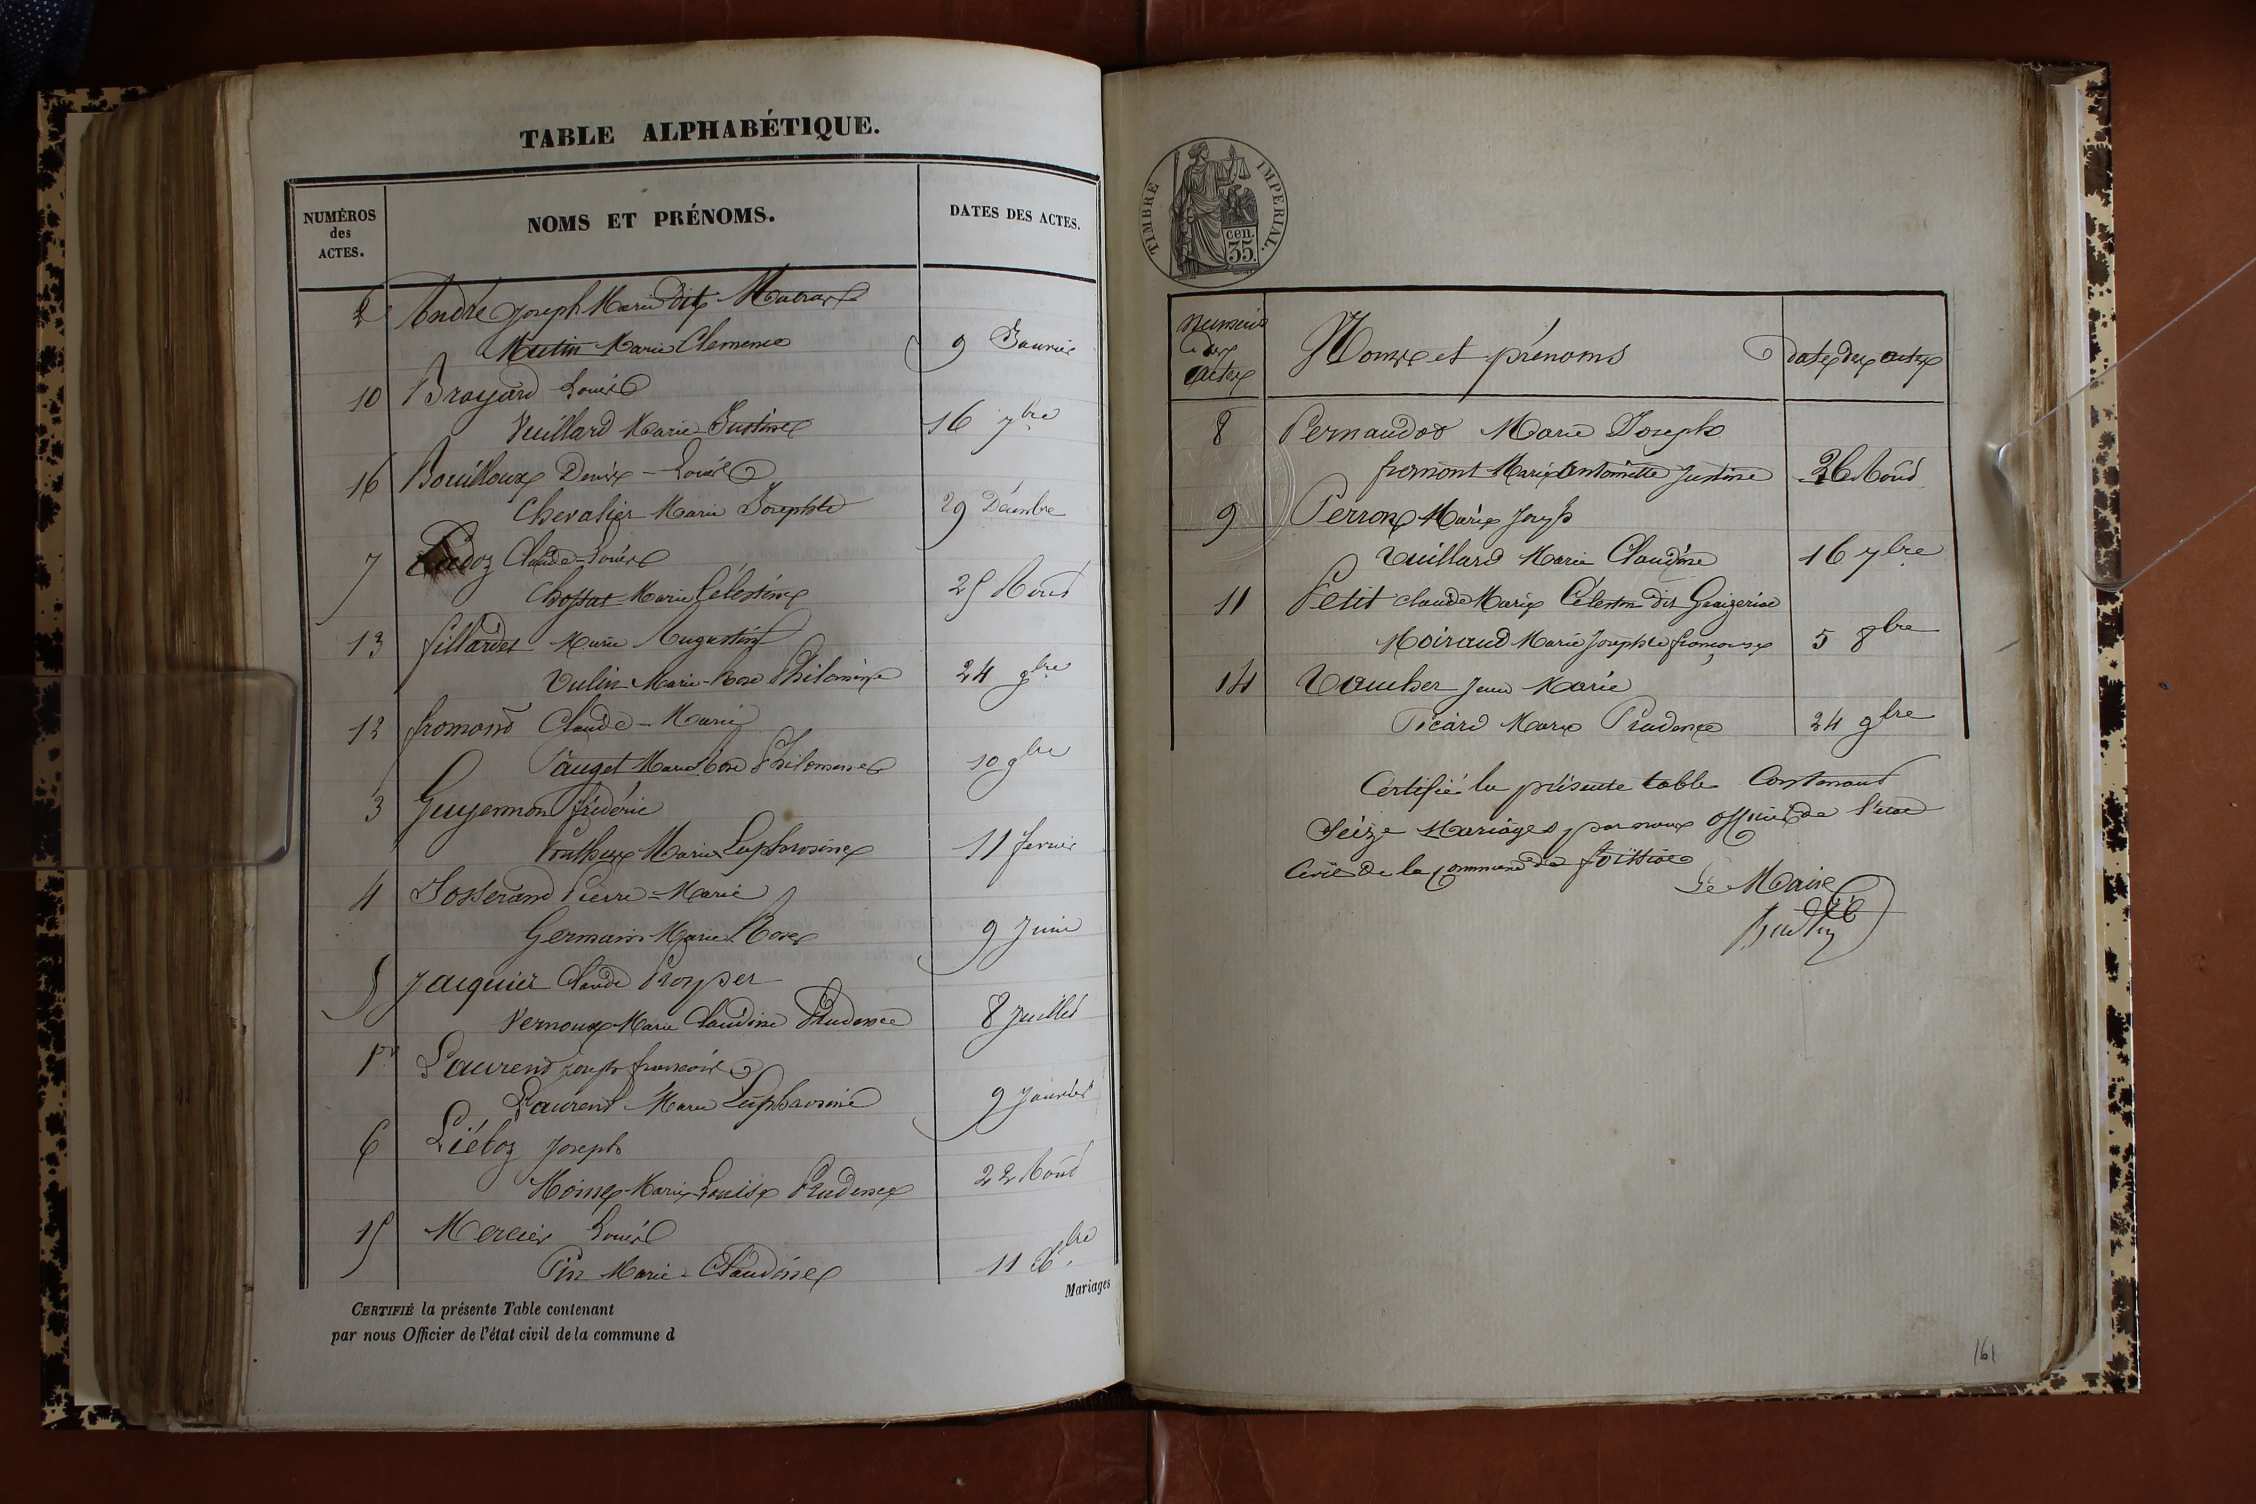 TABLE ALPHABÉTIQUE.
NUMÉROS
des
ACTES.
NOMS ET PRÉNOMS.
DATES DES ACTES.
2 André Joseph Marie dit
Mutin Marie Clemence 9 Janvier
10 Brayard Louis
Vuillard Marie Justine 16 7bre
16 Bouilloux Denis - Louis
Chevalier Marie Josephte 29 Décembre
7 Claude - Louis
Chossat Marie Célestine 25 Aout
13 fillardet Marie Augustin
Vulin Marie - Rose Philomine 24 9bre
12 fromond Claude - Marie
Pauget Marie Rose Philomene 10 9bre
3 Guyennon frédéric
Ponthus Marie Euphrosine 11 fevrier
4 Josserand Pierre = Marie
Germain Marie Rose 9 Juin
5 Jacquier Claude Prosper
Vernoux Marie Claudine Prudence 8 Juillet
1er Laurent joseph francois
Laurent Marie Euphrosine 9 Janvier
6 Liéboz Joseph
Moine Marie Louise Prudence 22 Aout
15 Mercier Louis
Pin Marie - Claudine 11 Xbre
Mariages
CERTIFIÉ la présente Table contenant
par nous Officier de l'état civil de la commune d
TIMBRE IMPERIAL.
cen.
35.
Numeros
des
actes
Noms et prénoms
Dates des actes
8 Pernaudat Marie Joseph
fromont Marie Antoinette Justine 26 Aout
9 Perron Marie Joseph
Vuillard Marie Claudine 16 7bre
11 Petit Claude Marie Celestin dit
Moiraud Marie Josephte françoise 5 8bre
14 Vaucher Jean Marie
Picard Marie Prudence 24 9bre
Certifié la présente table Contenant
Seize Mariages, par nous officier de l'etat
Civil de la commune de foissiat
Le Maire
161